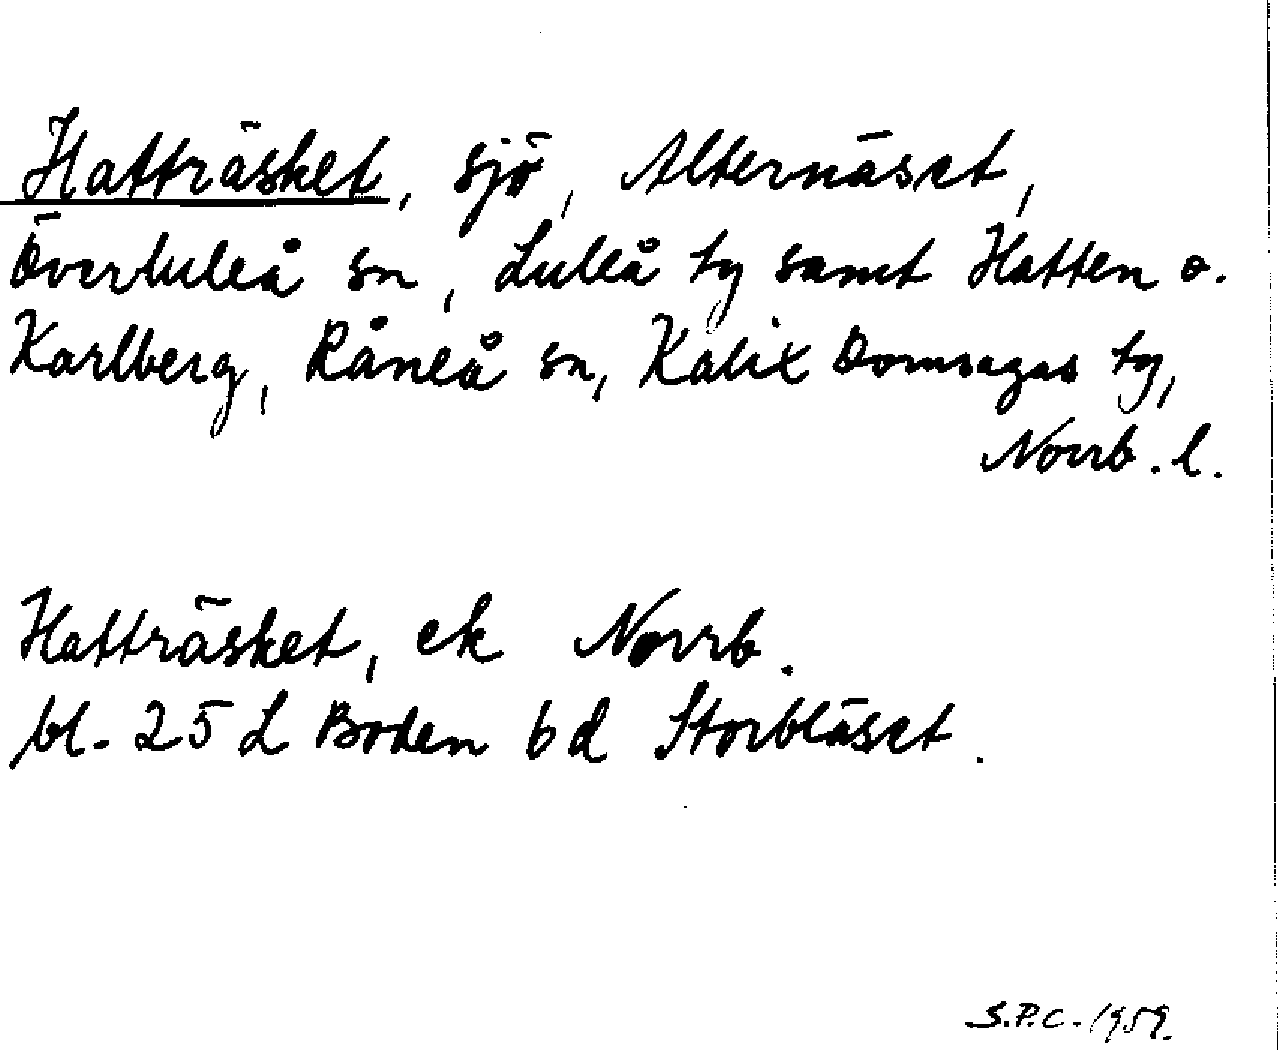 Hatträsket, sjö, Alternäset,
Överluleå sn, Luleå tg samt Hatten o.
Karlberg, Råneå sn, Kalix Domsagas tg,
Norrb. l.
Hatträsket, ek Norrb.
bl. 25 L Boden bd Storbläset.
S.P.C. 1959.